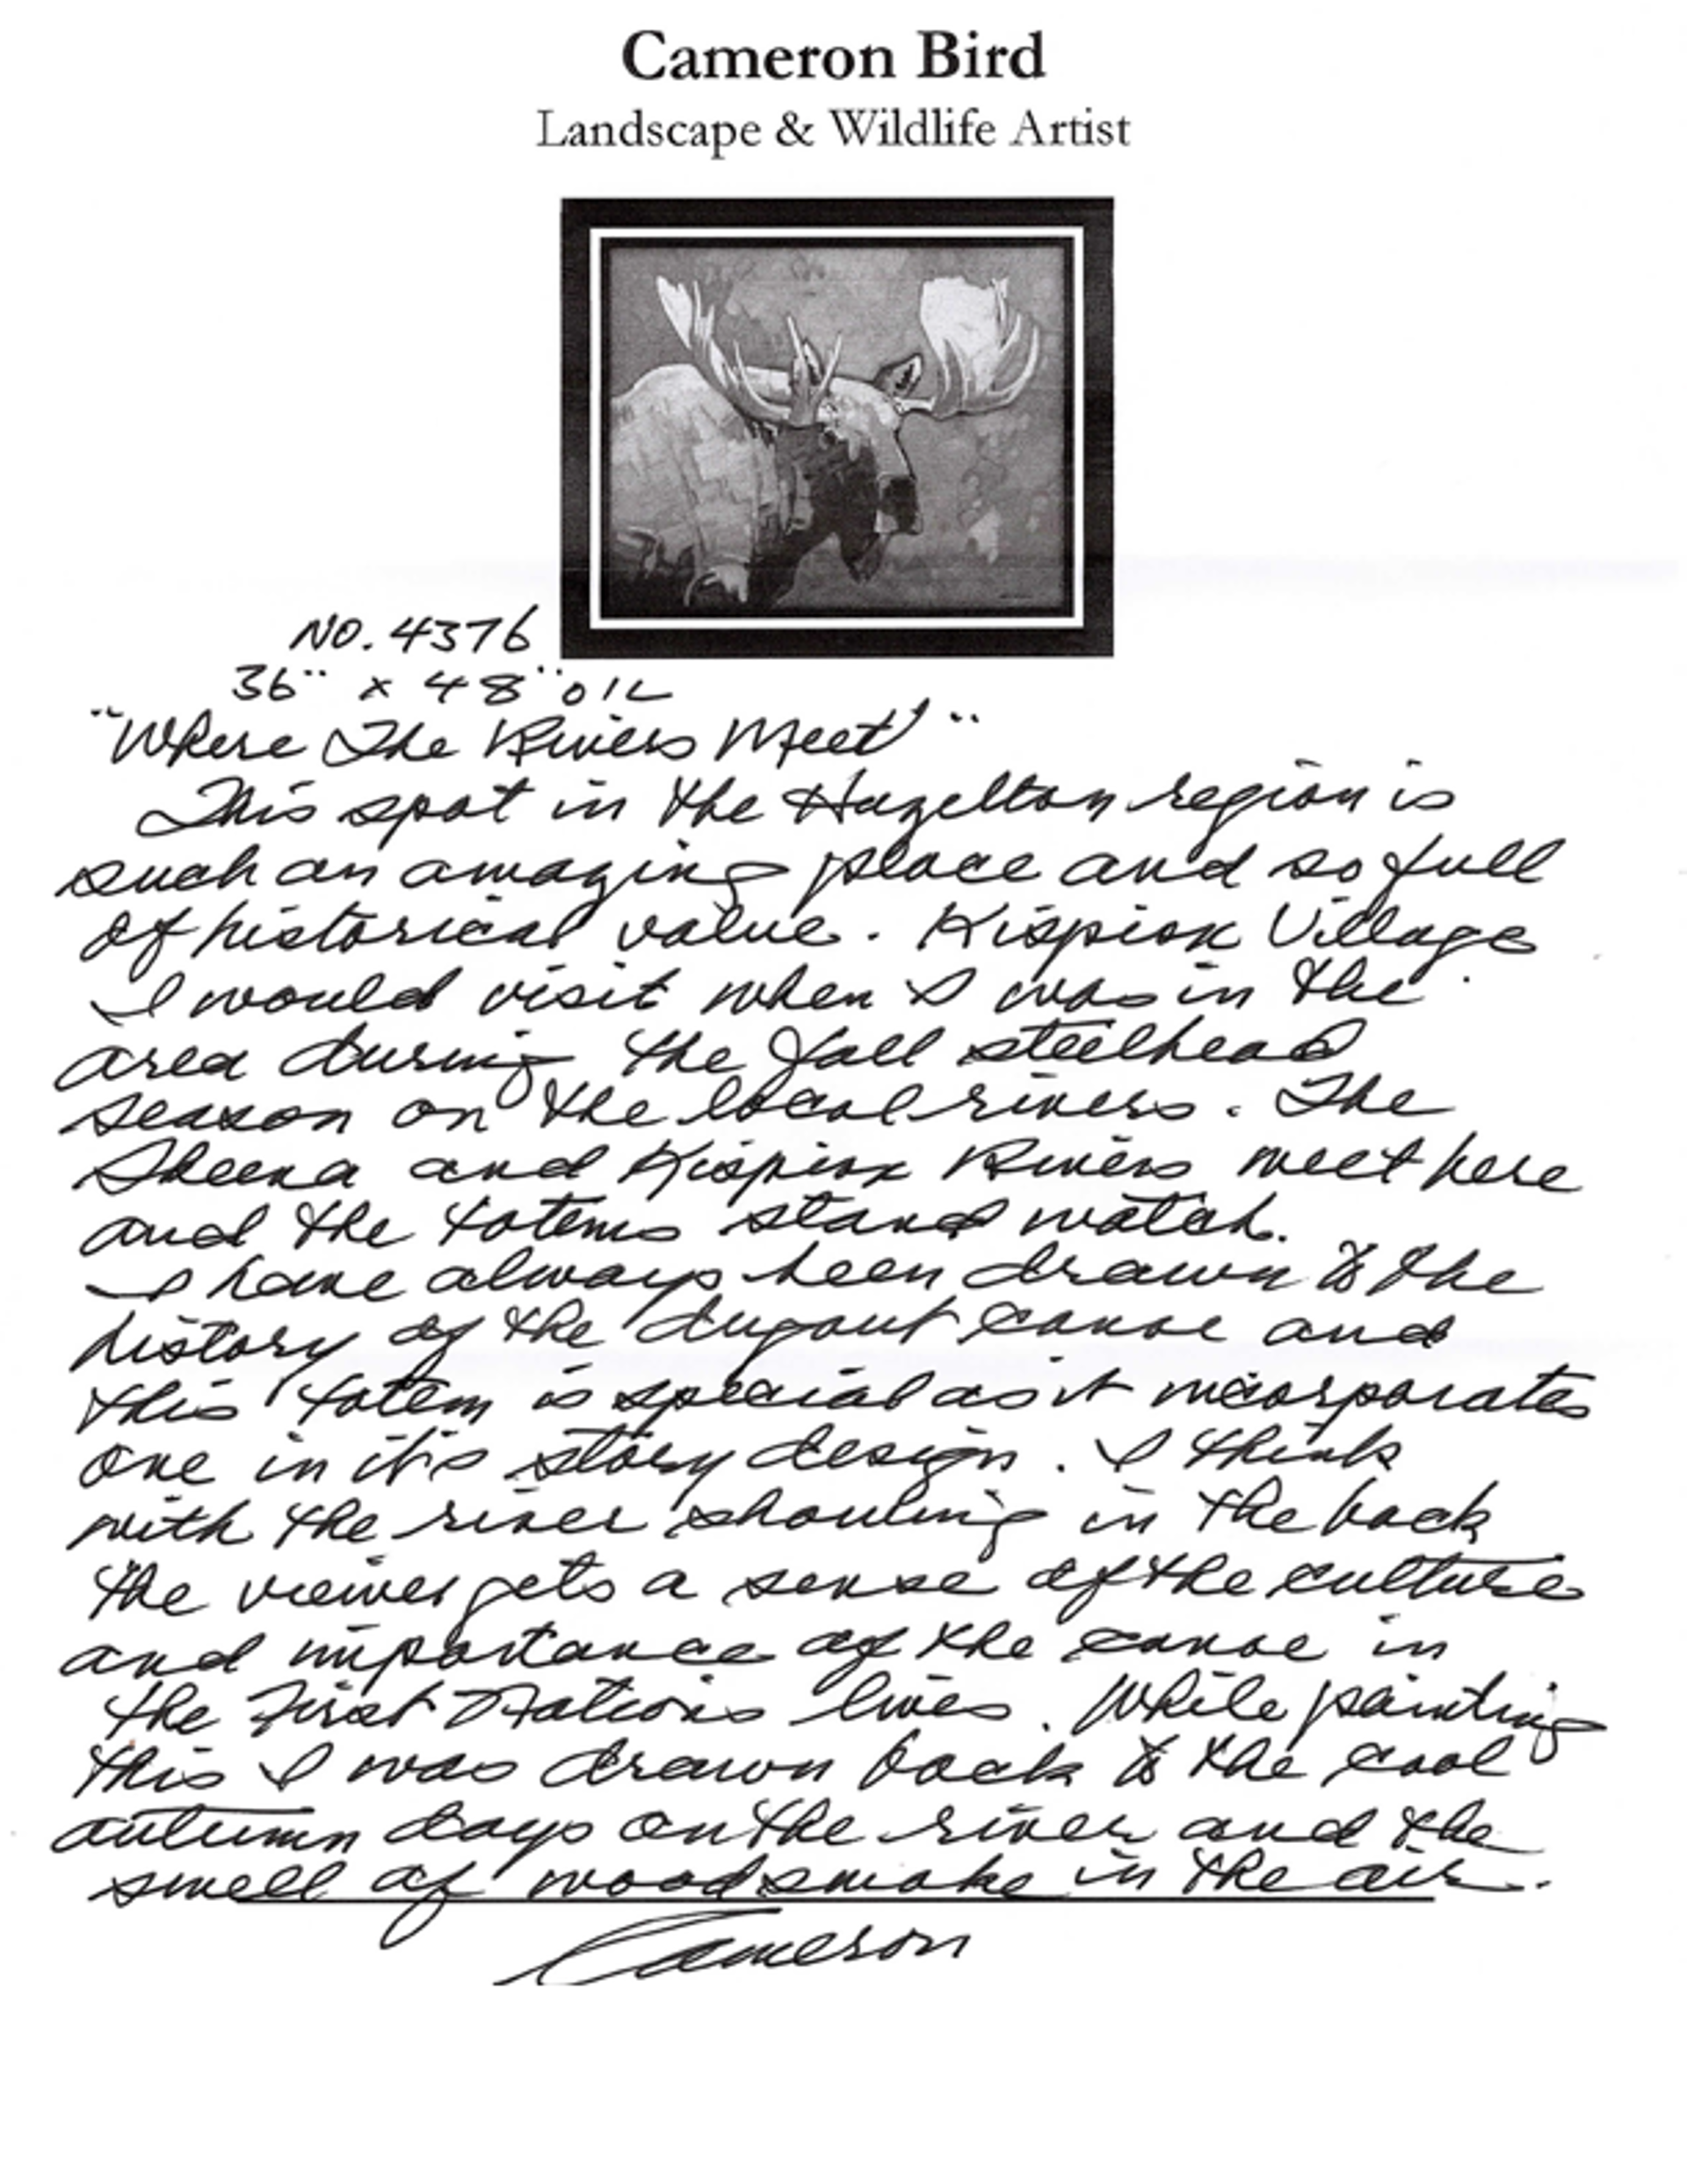 Cameron Bird
Landscape & Wildlife Artist
NO. 4376
36" x 48" OIL
"Where The Rivers Meet"
This spot in the Hazelton region is
such an amazing place and so full
of historical value. Kispiox Village
I would visit when I was in the
area during the fall steelhead
season on the local rivers. The
Skeena and Kispiox Rivers meet here
and the totems stand watch.
I have always been drawn to the
history of the dugout canoe and
this totem is special as it incorporates
one in it's story design. I think
with the river showing in the back
the viewer gets a sense of the culture
and importance of the canoe in
the First Nations lives. While painting
this I was drawn back to the cool
autumn days on the river and the
smell of woodsmoke in the air.
Cameron